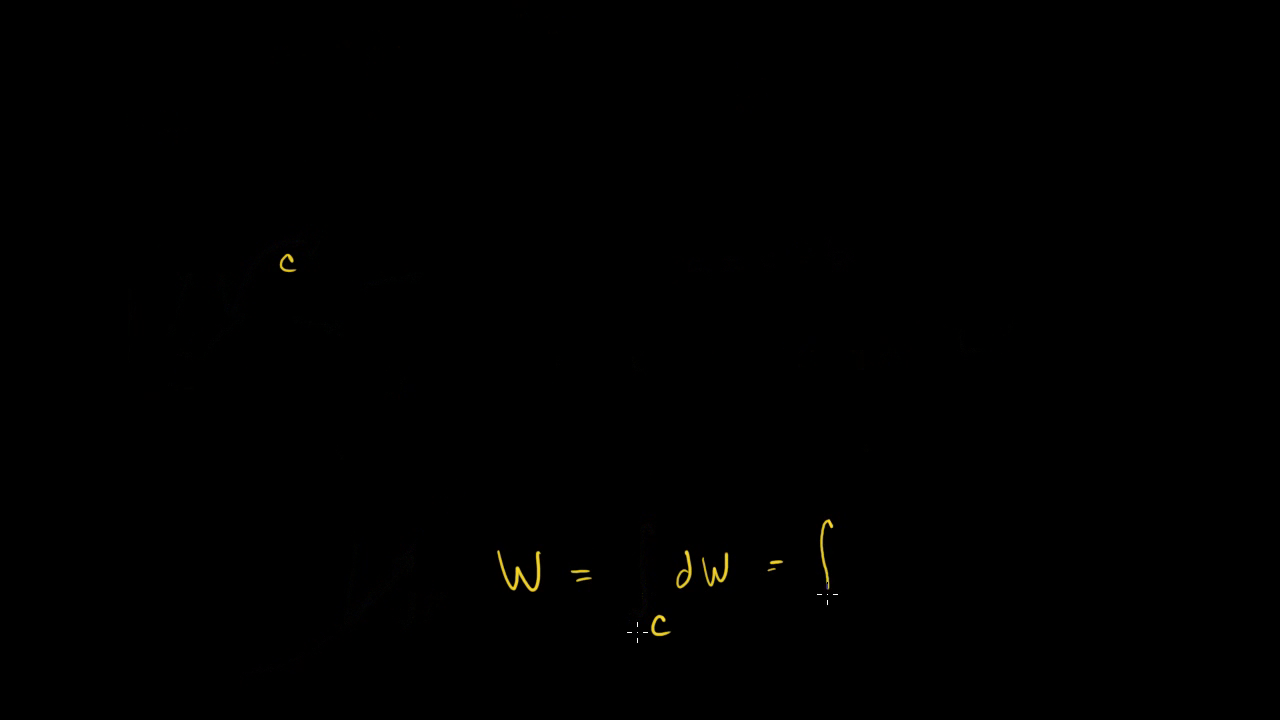 c
W = ∫_C dW = ∫